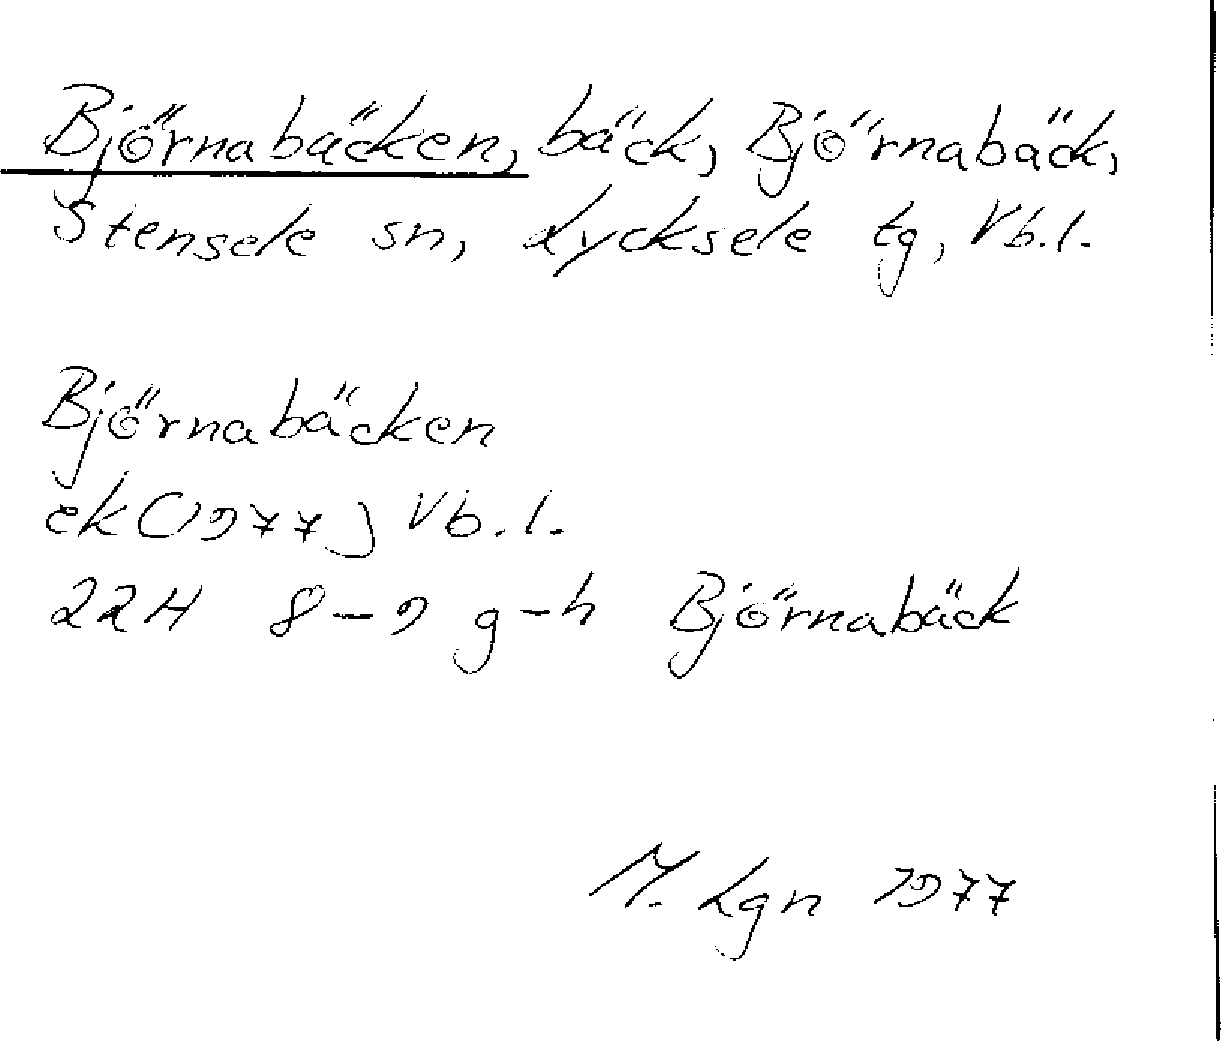 Björnabäcken, bäck, Björnabäck,
Stensele sn, Lycksele tg, Vb.l.
Björnabäcken
ek(1977) Vb.l.
22H 8-9 g-h Björnabäck
M. Lgn 1977